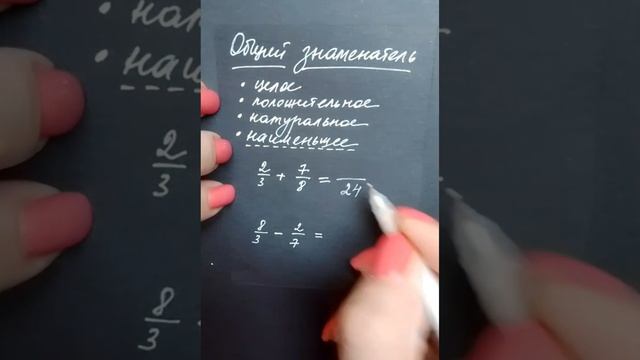 Общий знаменатель
• целое
• положительное
• натуральное
• наименьшее
2/3 + 7/8 = /24
8/3 - 2/7 =